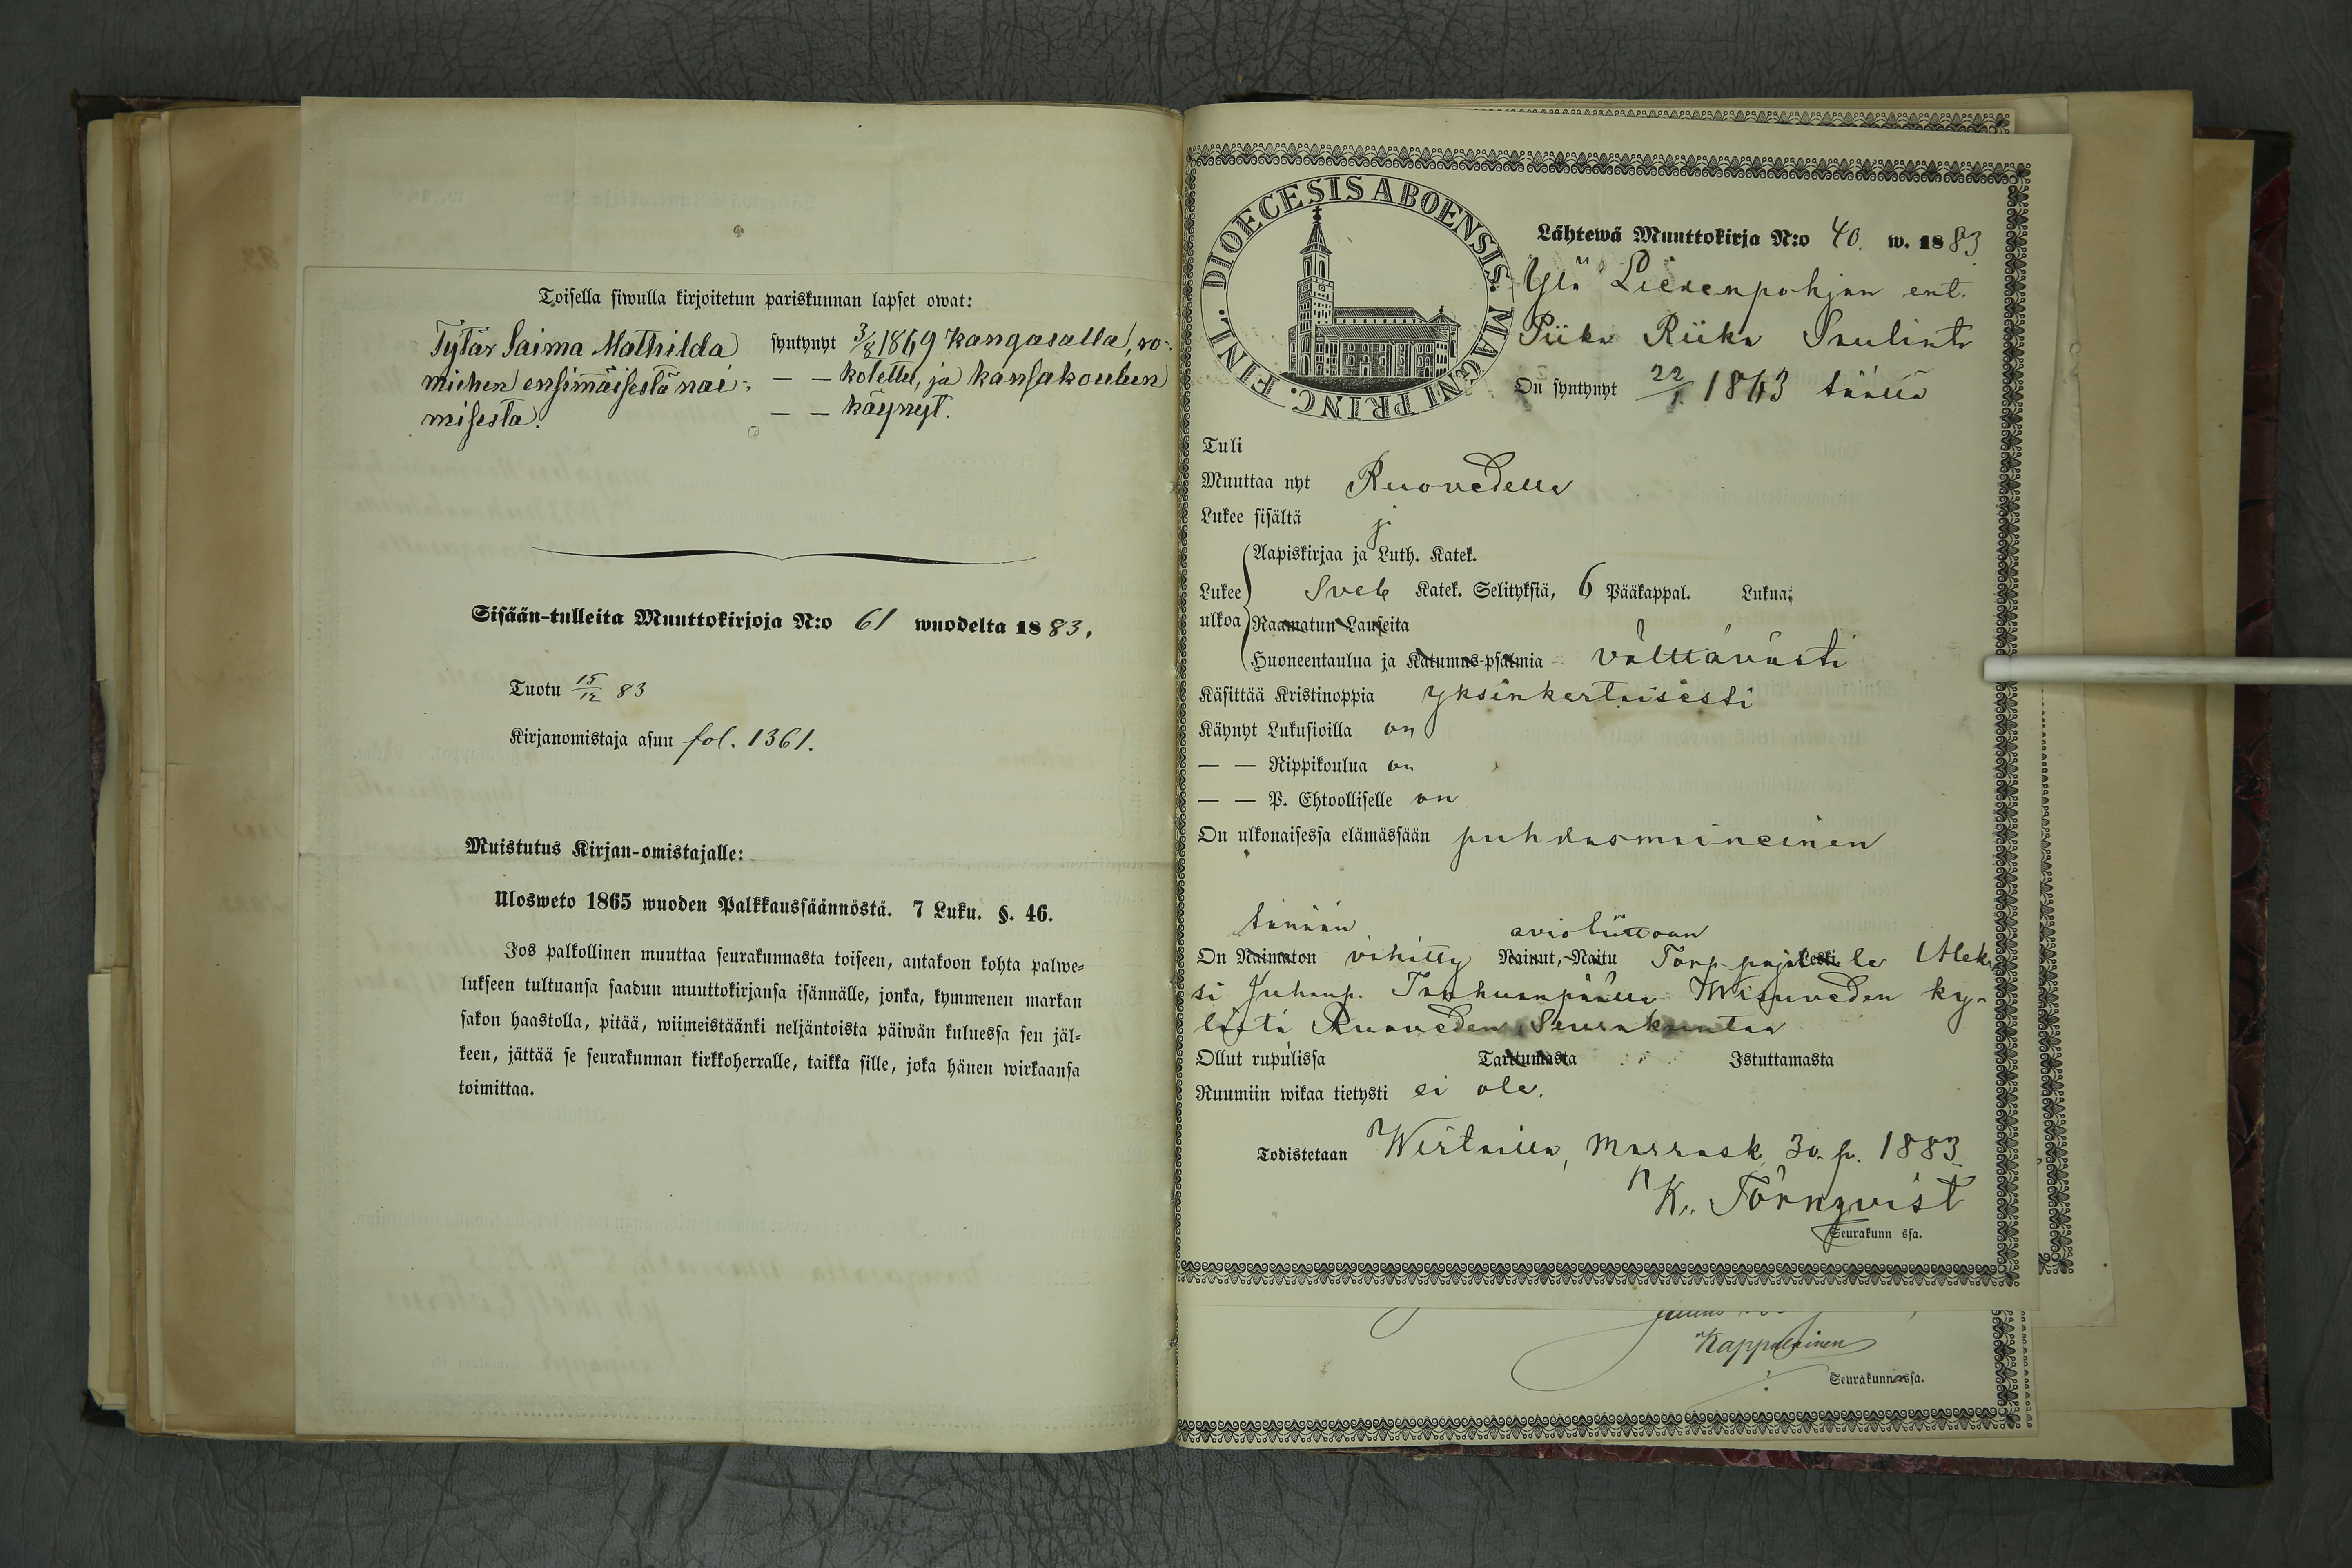 Toisella siwulla kirjoitetun pariskunnan lapset owat:
Tytär Saima Mathilda syntynyt 3/8 1869 Kangasalla, ro-
miehen ensimäisestä nai- — — kotettu, ja kansakoulun
misesta. — — käynyt.
Sisään-tulleita Muuttokirjoja N:o 61 wuodelta 1883.
Tuotu 15/12 83
Kirjanomistaja asuu fol. 1361.
Muistutus Kirjan-omistajalle:
Ulosweto 1865 wuoden Palkkaussäännöstä. 7 Luku. §. 46.
Jos palkollinen muuttaa seurakunnasta toiseen, antakoon kohta palwe-
lukseen tultuansa saadun muuttokirjansa isännälle, jonka, kymmenen markan
sakon haastolla, pitää, wiimeistäänki neljäntoista päiwän kuluessa sen jäl-
keen, jättää se seurakunnan kirkkoherralle, taikka sille, joka hänen wirkaansa
toimittaa.
DIOECESIS ABOENSIS. MAGNI PRINC. FINL.
Lähtewä Muuttokirja N:o 40. w. 1883
Ylä Liedenpohjan ent.
Piika Riika Paulinta
On syntynyt 22/1. 1843 täällä
Tuli
Muuttaa nyt Ruovedelle
Lukee sisältä
Aapiskirjaa ja Luth. Katek.
Lukee ulkoa Sveb Katek. Selityksiä, 6 Pääkappal. Lukua;
Raamatun Lauseita
Huoneentaulua ja Katumus-psalmia välttävästi
Käsittää Kristinoppia yksinkertaisesti
Käynyt Lukusioilla on
— — Rippikoulua on
— — P. Ehtoolliselle on
On ulkonaisessa elämässään puhdasmaineinen
tänään avioliittoon
On Naimaton vihitty Nainut, Naitu Leski Alek-
si Juhanp. Wisuveden ky-
lästä Ruoveden Seurakuntaa
Ollut rupulissa Tarttumasta Istuttamasta
Ruumiin wikaa tietysti ei ole.
Todistetaan Wirtailla, Marrask 30 p. 1883
K. Törnqvist
Seurakunn ssa.
Kappalainen
Seurakunnassa.